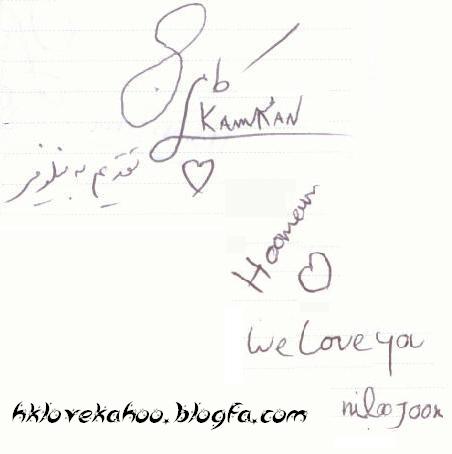 KAMRAN
تقدیم به نیلوفر
Hooman
We Love you
niloo Joon
hklovekahoo.blogfa.com